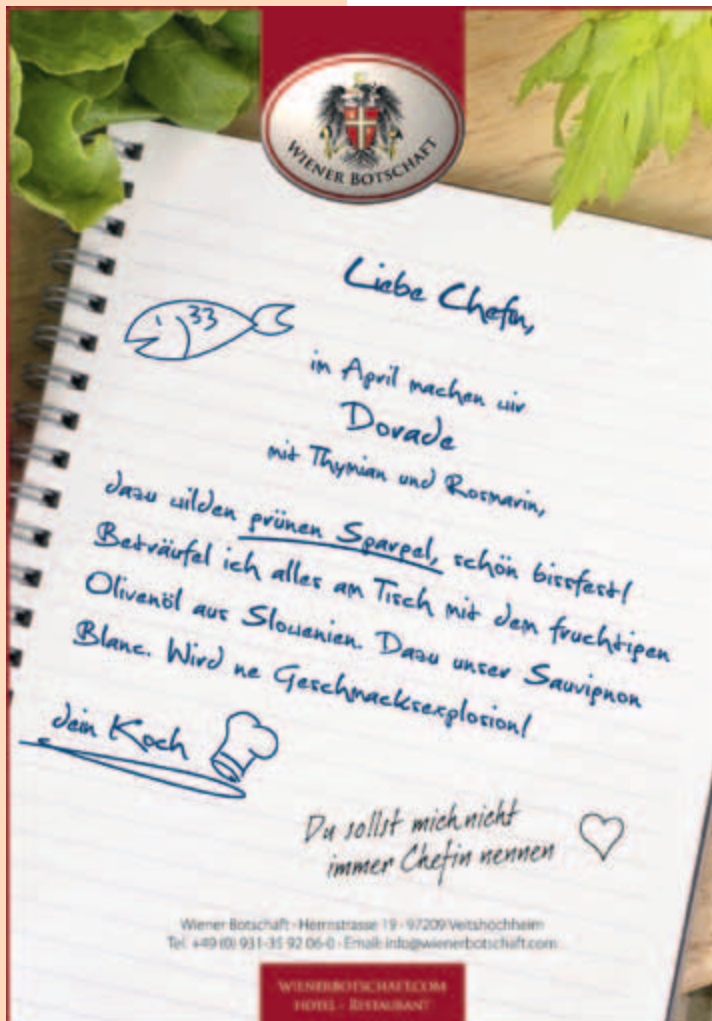 WIENER BOTSCHAFT
Liebe Chefin,
in April machen wir
Dorade
mit Thymian und Rosmarin,
dazu wilden grünen Spargel, schön bissfest!
Beträufel ich alles am Tisch mit dem fruchtigen
Olivenöl aus Slowenien. Dazu unser Sauvignon
Blanc. Wird ne Geschmacksexplosion!
dein Koch
Du sollst mich nicht
immer Chefin nennen
Wiener Botschaft - Herrnstrasse 19 - 97209 Veitshöchheim
Tel. +49 (0) 931-35 92 06-0 - Email: info@wienerbotschaft.com
WIENERBOTSCHAFT.COM
HOTEL - RESTAURANT